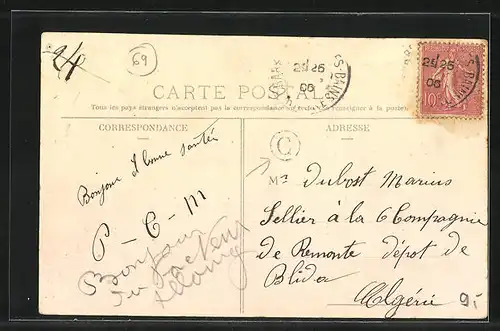 24
69
25 26
06
S-BAINS
25 26
06
10
CARTE POSTALE
Tous les pays étrangers n'acceptent pas la correspondance au recto (se renseigner à la poste)
CORRESPONDANCE
ADRESSE
C
Bonjour & bonne santée
P - C - M
Bonjour
Mr Dubost Marius
Sellier à la 6 Compagnie
de Remonte dépot de
Blida
Algérie
9.-